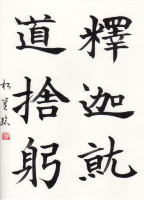 釋迦就
道捨躬